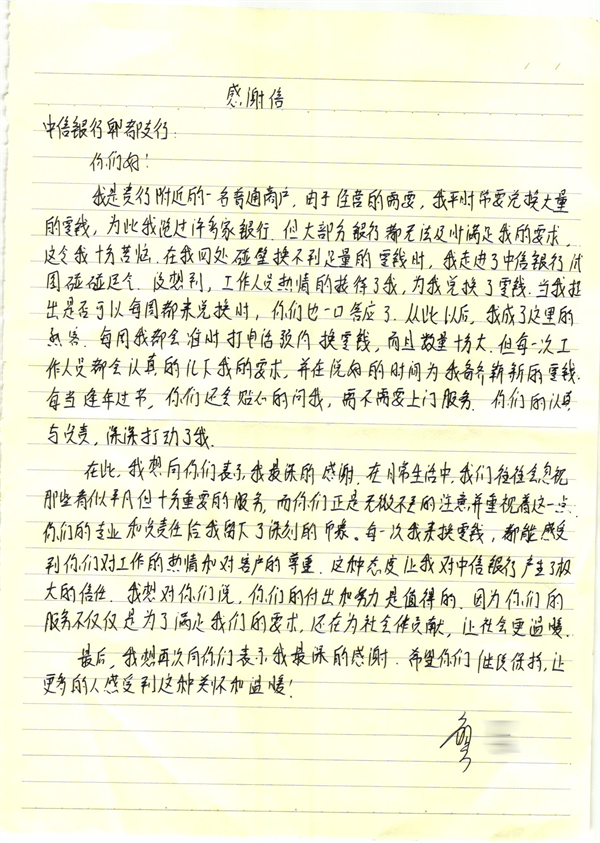 感谢信
中信银行郫都支行:
你们好!
我是贵行附近的一名普通商户,由于经营的需要,我平时常要兑换大量
的零钱,为此我跑过许多家银行.但大部分银行都无法及时满足我的要求,
这令我十分苦恼.在我四处碰壁换不到足量的零钱时,我走进了中信银行,试
图碰碰运气.没想到,工作人员热情的接待了我,为我兑换了零钱.当我提
出是否可以每周都来兑换时,你们也一口答应了.从此以后,我成了这里的
熟客.每周我都会准时打电话预约换零钱,而且数量十分大.但每一次工
作人员都会认真的记下我的要求,并在说好的时间为我备齐新新的零钱.
每当逢年过节,你们还会贴心的问我,需不需要上门服务.你们的认真
与负责,深深打动了我.
在此,我想向你们表示我最深的感谢.在日常生活中,我们往往会忽视
那些看似平凡但十分重要的服务,而你们正是无微不至的注意并重视着这一点.
你们的专业和负责任给我留下了深刻的印象。每一次我来换零钱,都能感受
到你们对工作的热情和对客户的尊重.这种态度让我对中信银行产生了极
大的信任.我想对你们说,你们的付出和努力是值得的.因为你们的
服务不仅仅是为了满足我们的要求,还在为社会做贡献,让社会更温暖.
最后,我想再次向你们表示我最深的感谢.希望你们继续保持,让
更多的人感受到这种关怀和温暖!